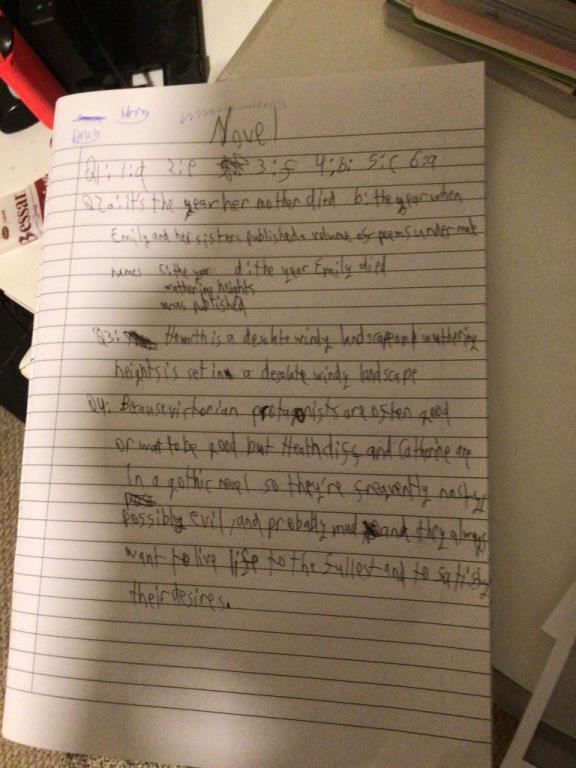 Novel
Q1: 1:d 2:e 3:f 4:b: 5:c 6:a
Q2a: it's the year her mother died b: the year when
Emily and her sisters published a volume of poems under male
names c: the year d: the year Emily died
wuthering heights
was published
Q3: Howorth is a desolate windy landscape and wuthering
heights is set in a desolate windy landscape
Q4: Because victorian protagonists are often good
or want to be good but Heathcliff and Catherine are
In a gothic novel so they're frequently nasty
possibly evil, and probably mad and they always
want to live life to the fullest and to satisfy
their desires.
Bessar